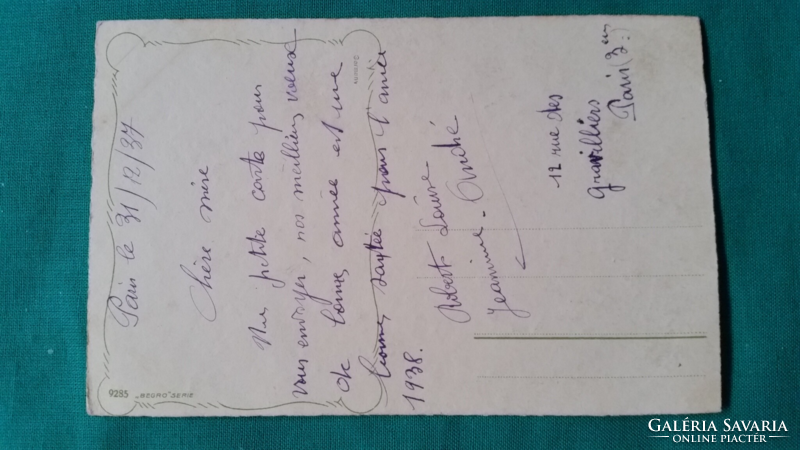 Paris le 31/12/37
Chère mère
Une petite carte pour
vous envoyer, nos meillieurs voeux
de bonne année et une
bonne santée pour l'année
1938.
Robert Louise
Jeannine - André
12 rue des
gravilliers
Paris (3em)
9285 "BEGRO" SERIE
GALÉRIA SAVARIA
ONLINE PIACTÉR